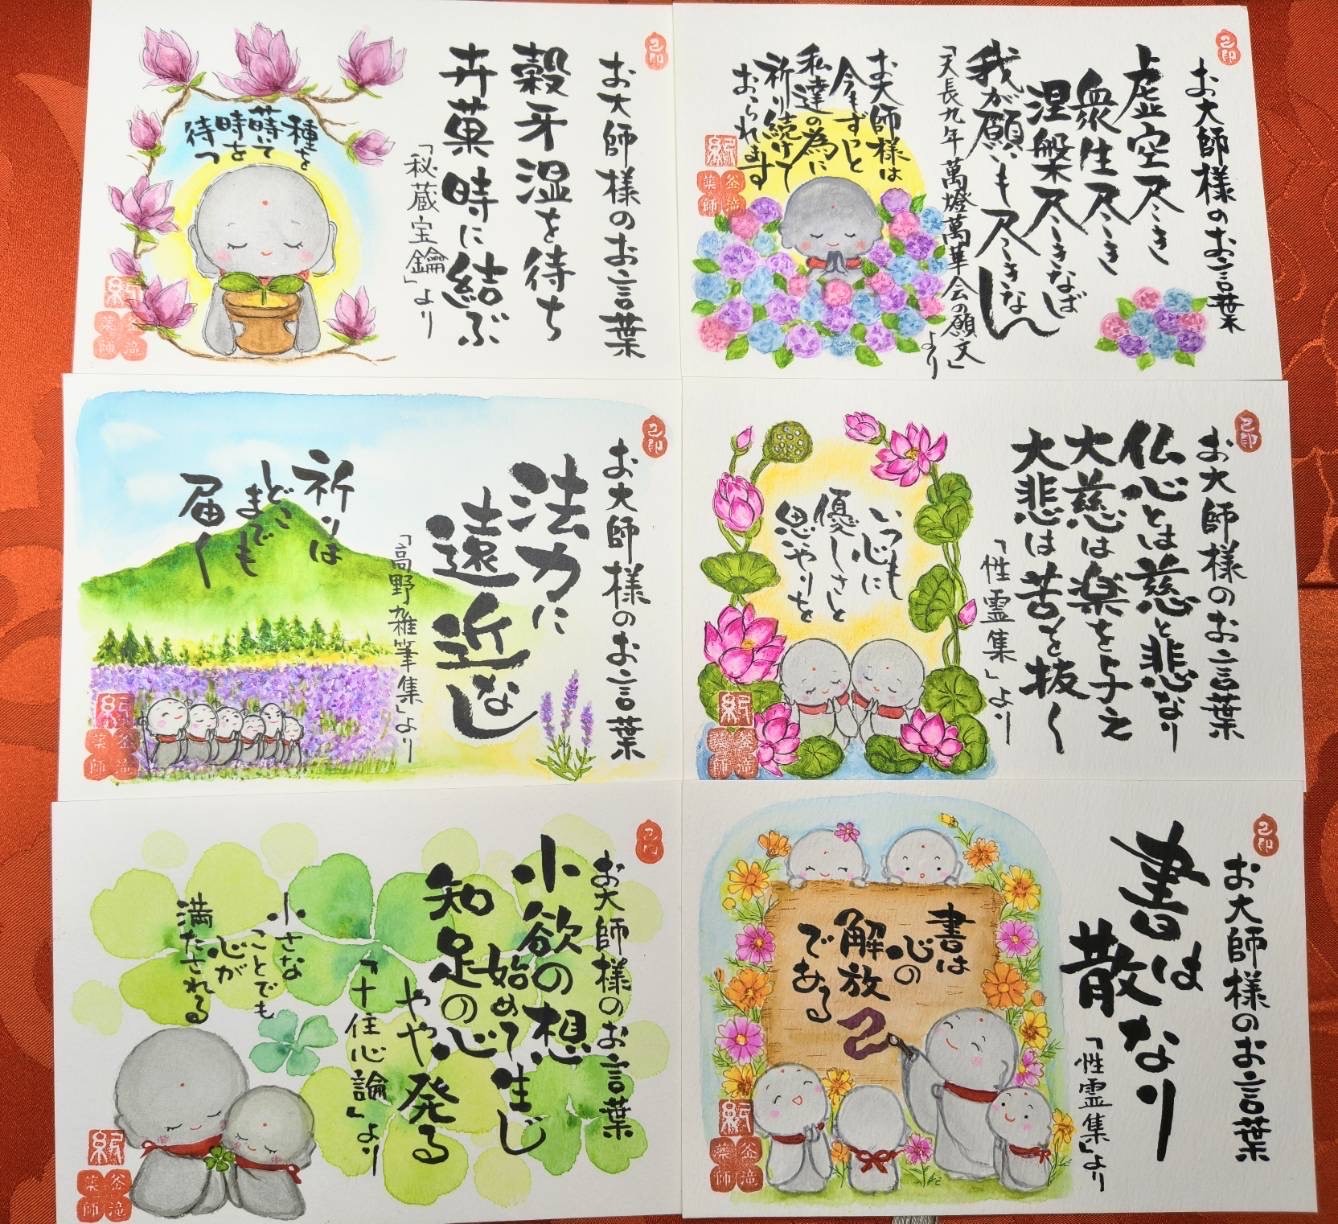 お大師様のお言葉
穀牙湿を待ち
卉菓時に結ぶ
「秘蔵宝鑰」より
種を
蒔いて
時を
待つ
お大師様のお言葉
虚空尽き
衆生尽き
涅槃尽きなば
我が願いも尽きなん
「天長九年萬燈萬華会の願文」より
お大師様は
今もずっと
私達の為に
祈り続けて
おられます
お大師様のお言葉
法力に
遠近なし
「高野雑筆集」より
祈りは
どこ
までも
届く
お大師様のお言葉
仏心とは慈と悲なり
大慈は楽を与え
大悲は苦を抜く
「性霊集」より
いつも
心に
優しさと
思やりを
お大師様のお言葉
小欲の想
始めて生じ
知足の心
やや発る
「十住心論」より
小さな
ことでも
心が
満たされる
お大師様のお言葉
書は
散なり
「性霊集」より
書は
心の
解放
である
釜滝
薬師